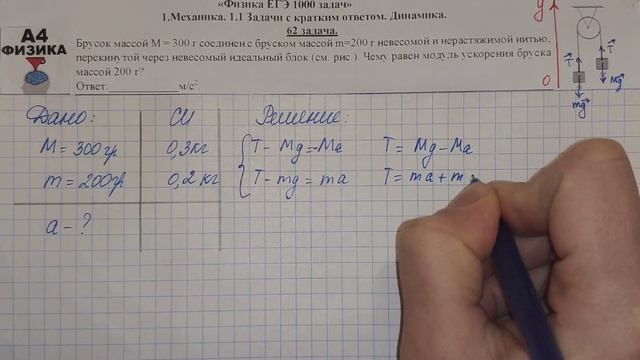 «Физика ЕГЭ 1000 задач»
1.Механика. 1.1 Задачи с кратким ответом. Динамика.
62 задача.
А4
ФИЗИКА
Брусок массой M = 300 г соединен с бруском массой m=200 г невесомой и нерастяжимой нитью,
перекинутой через невесомый идеальный блок (см. рис.). Чему равен модуль ускорения бруска
массой 200 г?
Ответ: м/с²
y
0
T
T
mg
Mg
Дано: СИ Решение:
M = 300гр 0,3кг T - Mg = -Ma T = Mg - Ma
m = 200гр 0,2 кг T - mg = ma T = ma + m
a - ?